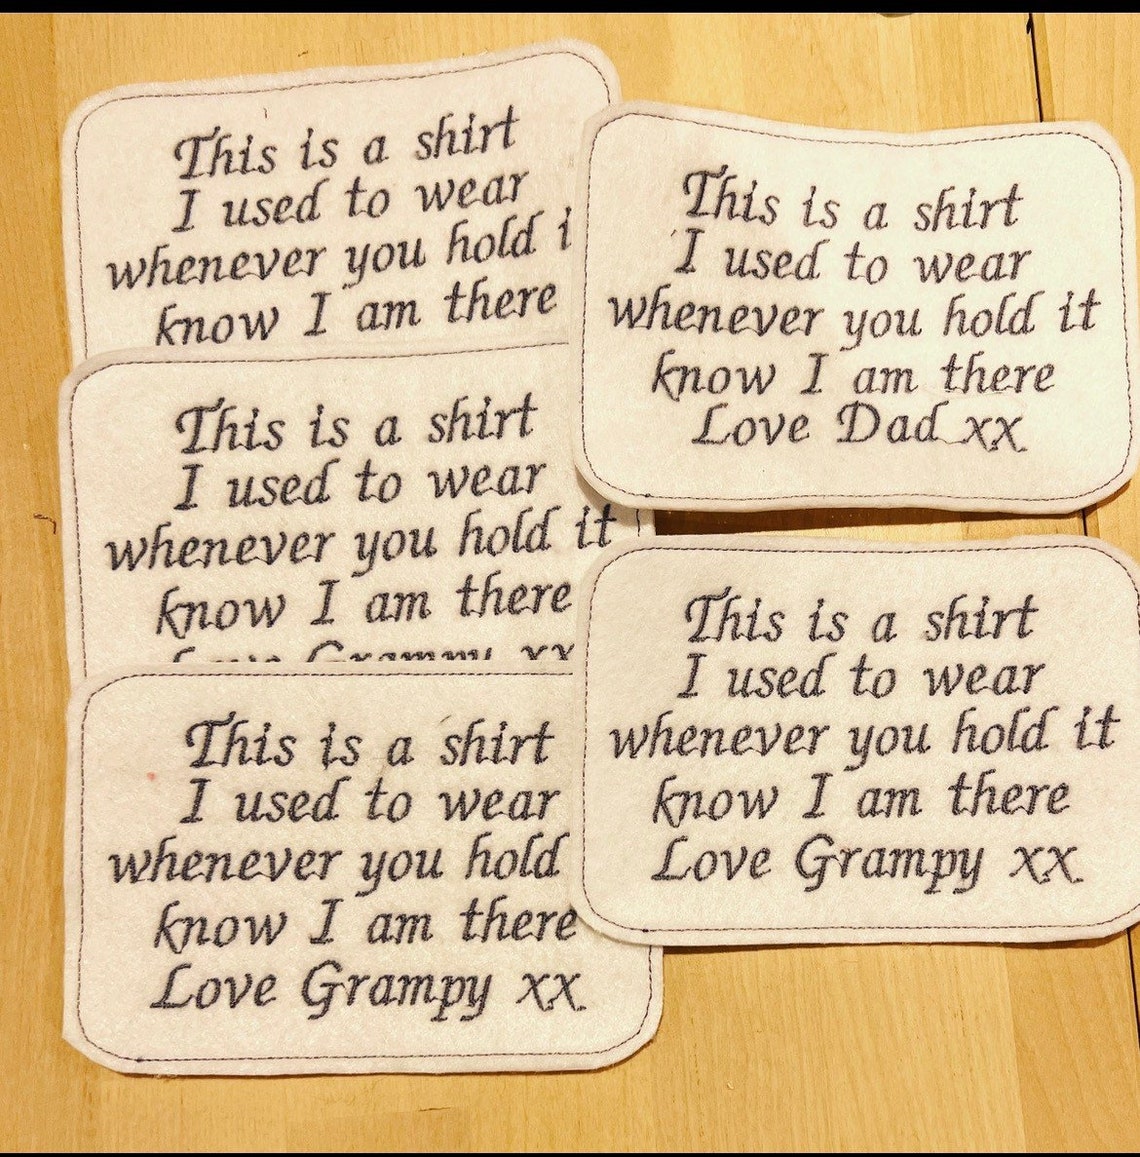 This is a shirt
I used to wear
whenever you hold i
know I am there
This is a shirt
I used to wear
whenever you hold it
know I am there
Love Grampy xx
This is a shirt
I used to wear
whenever you hold
know I am there
Love Grampy xx
This is a shirt
I used to wear
whenever you hold it
know I am there
Love Dad xx
This is a shirt
I used to wear
whenever you hold it
know I am there
Love Grampy xx